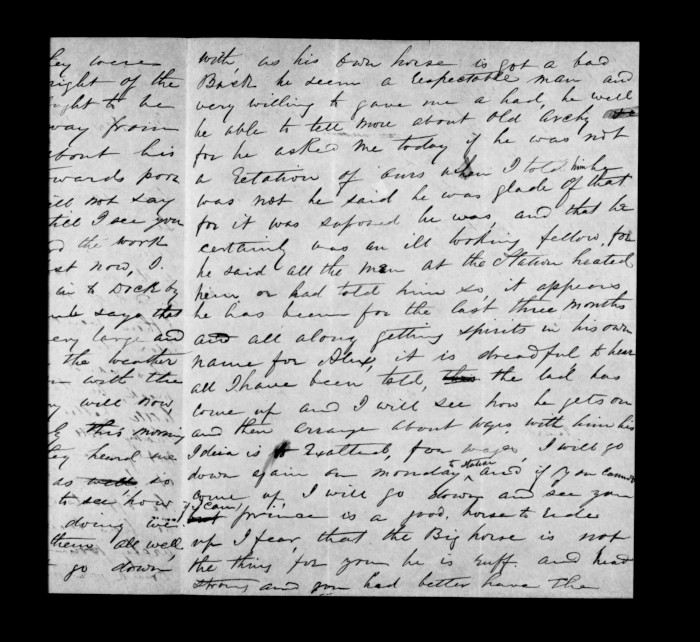 ley were
right of the
ought to be
way from
about his
towards poor
will not say
till I see you
the work
st now, I
to Dick by
says that
very large and
the weather
with the
will now,
this morning
they heard me
as well so
to see how
doing we
them all well
go down
with as his own horse is got a bad
Back he seem a respectable man and
very willing to gave me a had, he well
be able to tell more about Old Archy
for he asked me today if he was not
a Retation of ours when I told him he
was not he said he was glade of that
for it was suposed he was, and that he
certainly was an ill looking fellow, for
he said all the men at the Station heated
him or had told him so, it appears,
he has been for the last three months
and all along getting spirits in his own
name for Alex, it is dreadful to hear
all I have been told, this the lad has
come up and I will see how he gets on
and then arrange about wages with him his
Ideia is Exalted, for wages, I will go
down again on monday to station and if you cannot
come up, I will go down and see you
if you can, but prince is a good horse to ride
up I fear, that the Big horse is not
the thing for you he is ruff and head
strong and you had better have the